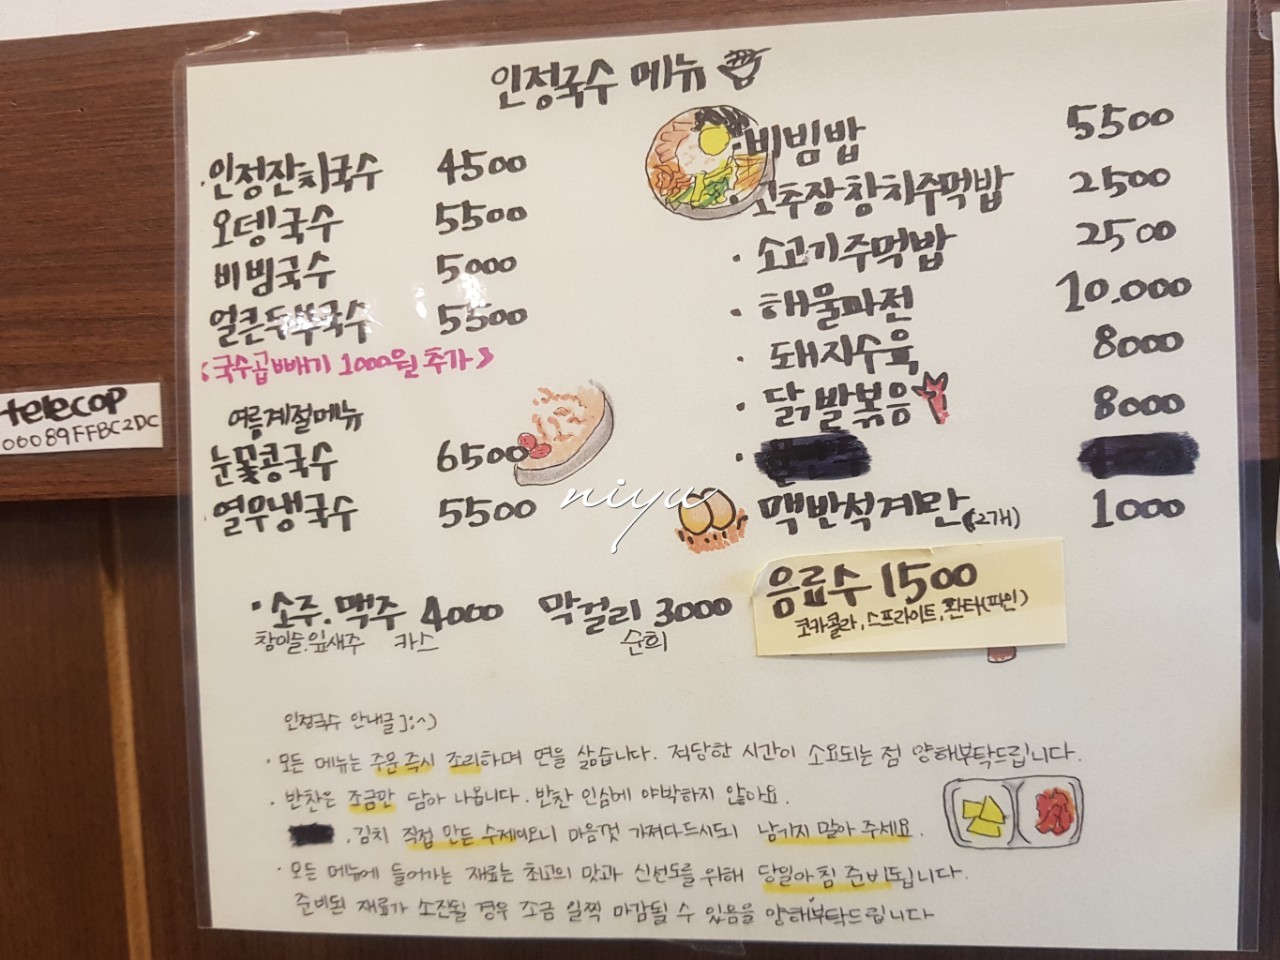 인정국수 메뉴
·인정잔치국수 4500
오뎅국수 5500
비빔국수 5000
얼큰두부국수 5500
<국수곱빼기 1000원 추가>
여름계절메뉴
눈꽃콩국수 6500
·열무냉국수 5500
·비빔밥 5500
·고추장참치주먹밥 2500
·소고기주먹밥 2500
·해물파전 10.000
·돼지수육 8000
·닭발볶음 8000
맥반석계란(2개) 1000
·소주.맥주 4000
참이슬.잎새주 카스
막걸리 3000
순희
음료수 1500
코카콜라, 스프라이트, 환타(파인)
telecop
00089FFBC2DC
niyu
인정국수 안내글];^)
·모든 메뉴는 주문즉시 조리하며 면을 삶습니다. 적당한 시간이 소요되는 점 양해부탁드립니다.
·반찬은 조금만 담아 나옵니다. 반찬 인심에 야박하지 않아요.
.김치 직접 만든 수제이오니 마음껏 가져다드시되 남기지 말아 주세요.
·모든 메뉴에 들어가는 재료는 최고의 맛과 신선도를 위해 당일아침 준비됩니다.
준비된 재료가 소진될 경우 조금 일찍 마감될 수 있음을 양해부탁드립니다